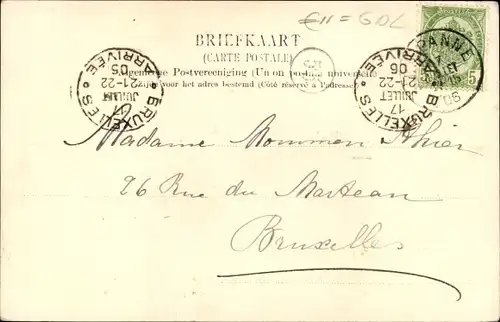 €11 = GDL
BRIEFKAART
(CARTE POSTALE)
Algemeene Postvereeniging (Union postale universelle)
Zijde voor het adres bestemd (Côté réservé à l'adresse)
BRUXELLES ARRIVÉE
21-22
17
JUILLET
05
BRUXELLES ARRIVÉE
21-22
17
JUILLET
06
PANNE
5
Madame Mommen Thier
26 Rue du Marteau
Bruxelles